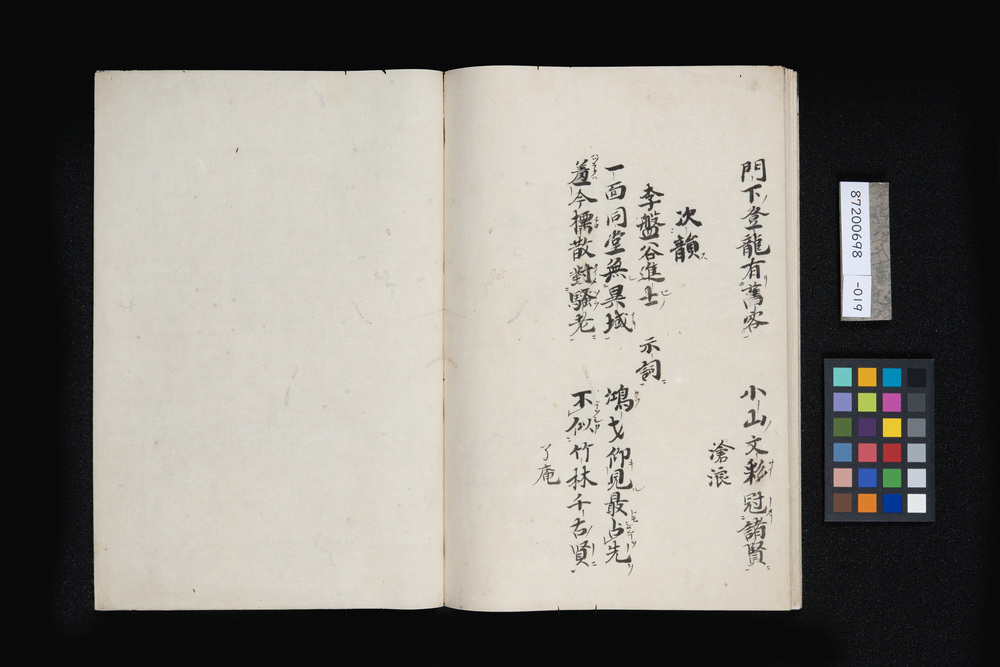 門下登龍有舊客 小山文彩冠諸賢
滄浪
次韻
李盤谷進士 示詞
一面同堂無異域 鴻才仰見最占先
羞今樗散對騷老 不似竹林千古賢
了庵
87200698
-019